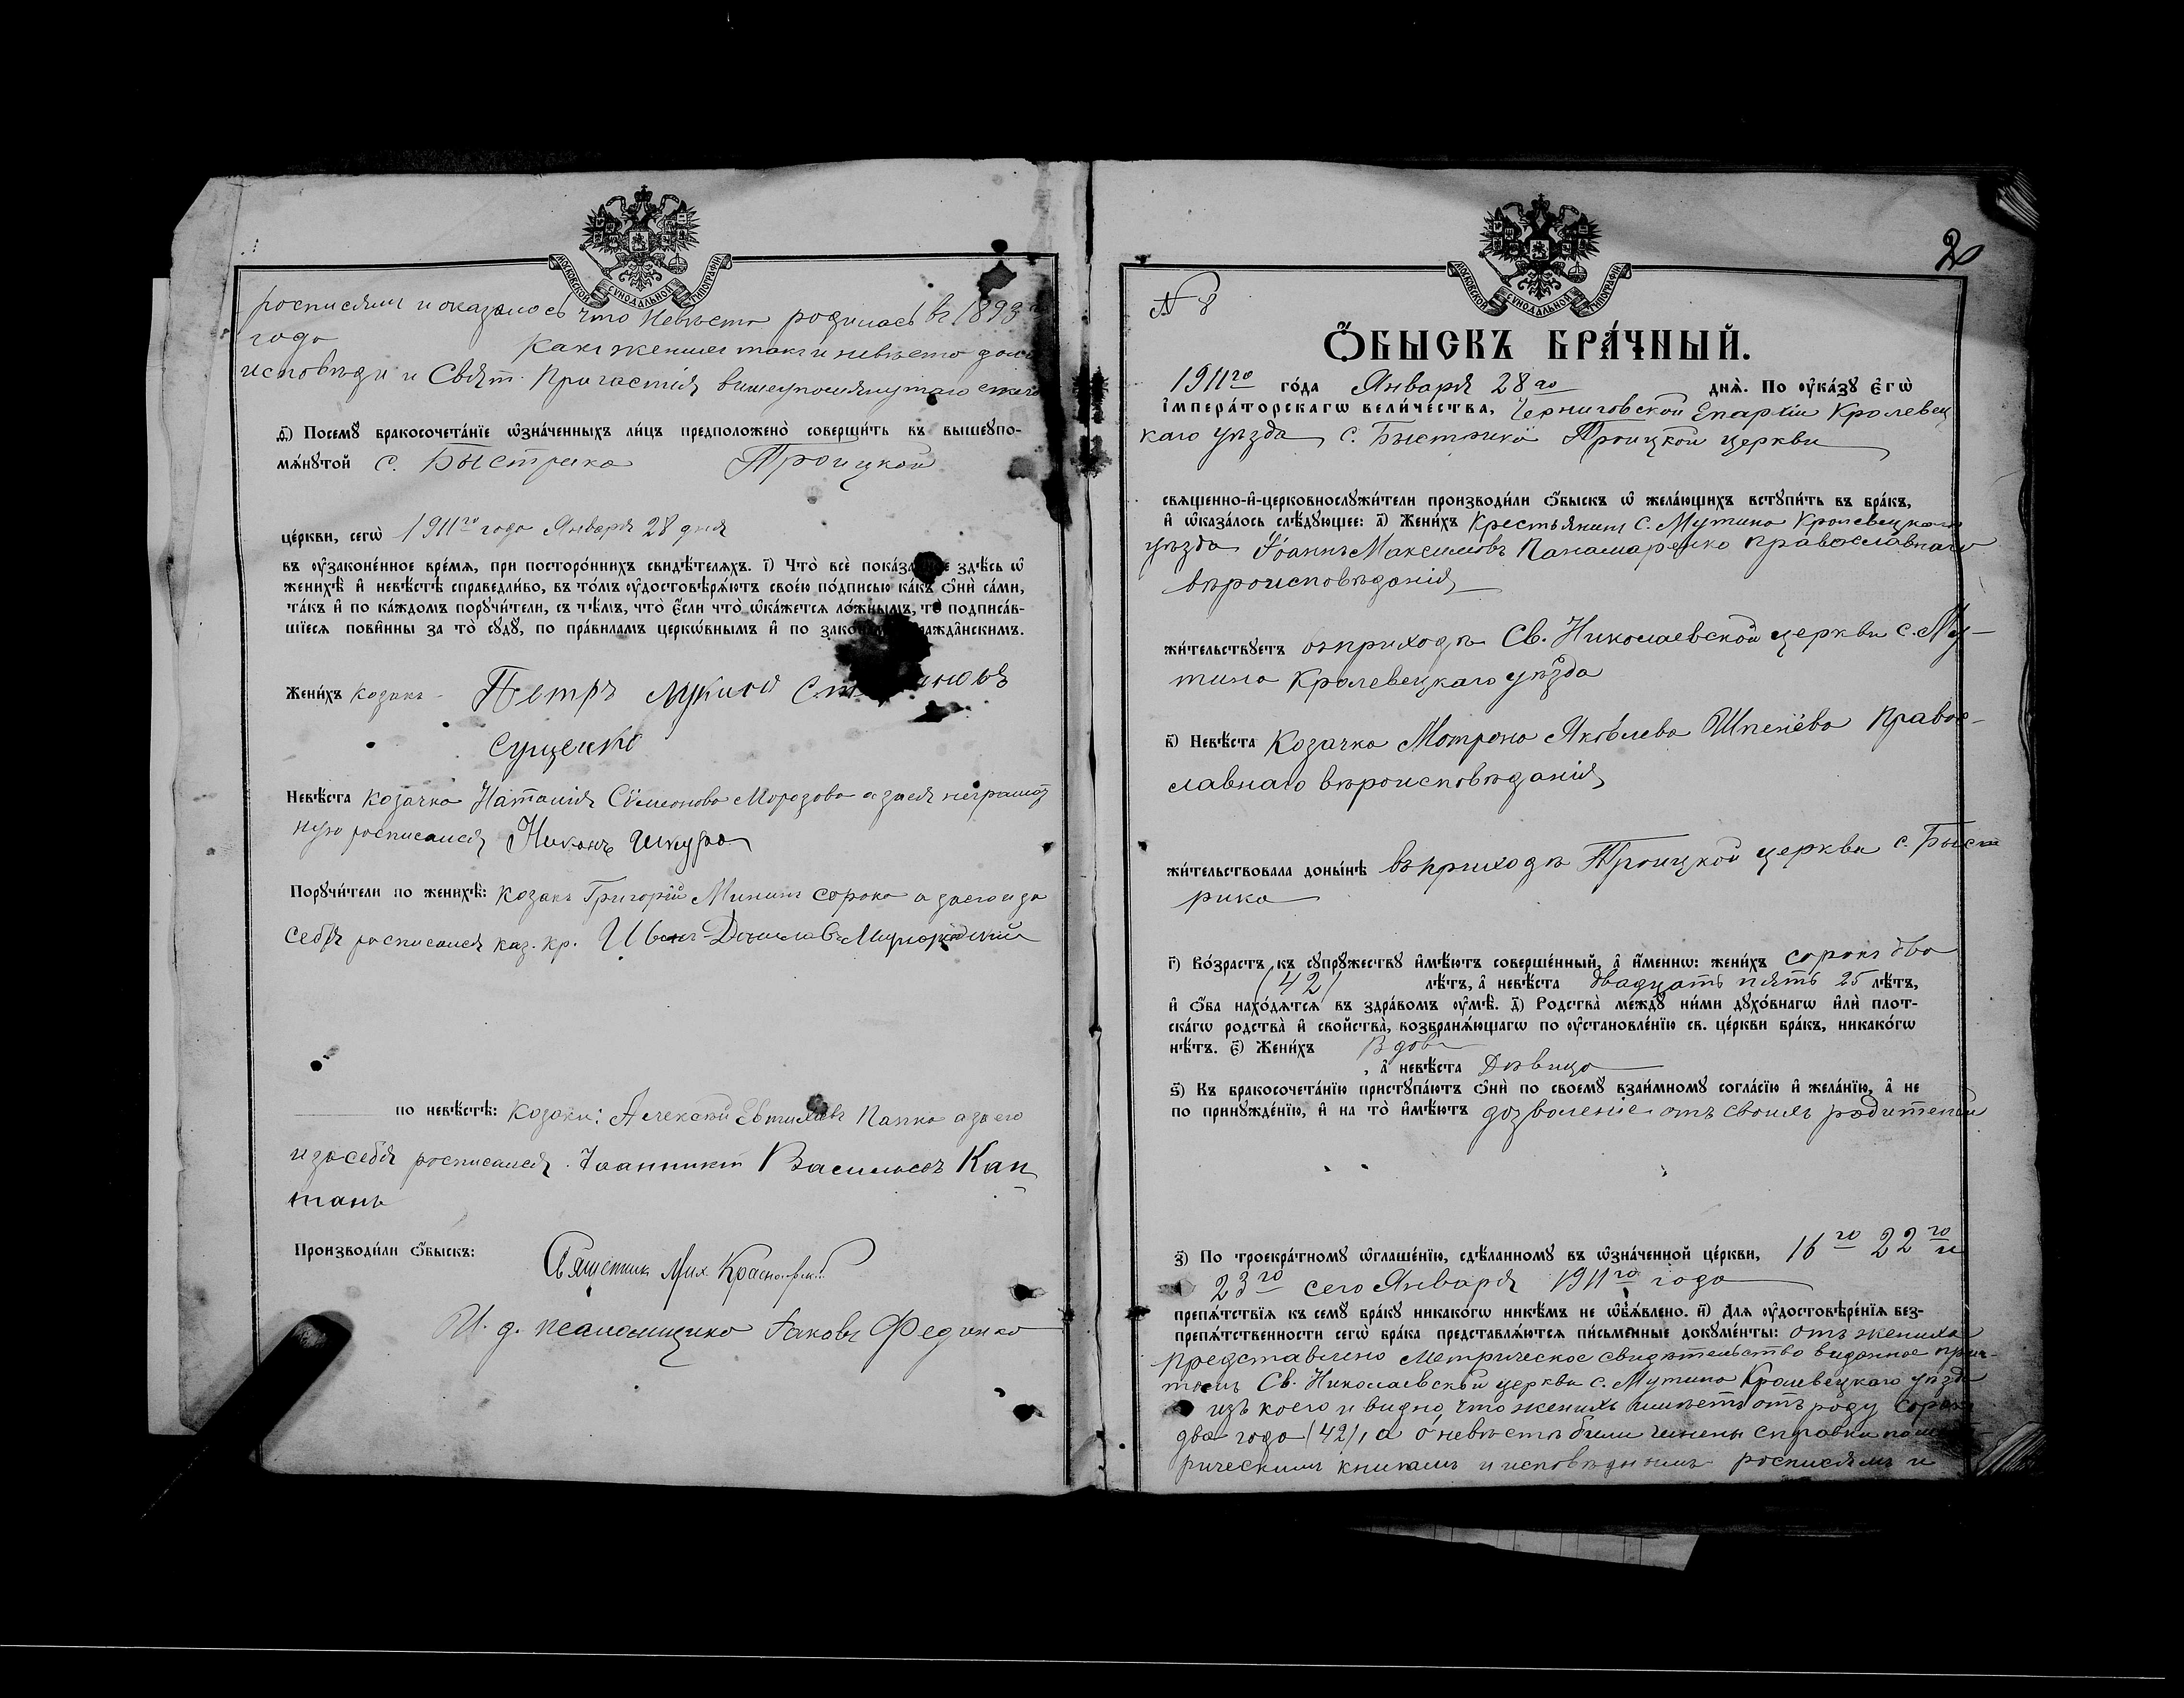 МОСКОВСКОЙ СУНОДАЛЬНОЙ ТИПОГРАФІИ
росписямъ и оказалось что невѣста родилась въ 1893
года Какъ женихъ такъ и невѣста
исповѣди и Свят. Причастія вышеупомянутаго
д҃) Посемꙋ бракосочета́нїе ѡ҆зна́ченныхъ ли́цъ предположено̀ соверши́ть въ вышеупо-
мѧ́нꙋтой с. Быстрика Троицкой
це́ркви, сегѡ̀ 1911го года Января 28 дня
въ ᲂу҆зако́ненное вре́мѧ, при посторо́ннихъ свидѣ́телѧхъ. і҃) Что̀ всѐ показа́нное здѣ́сь ѡ҆
женихѣ̀ и҆ невѣ́стѣ справедли́во, въ то́мъ ᲂу҆достовѣрѧ́ютъ свое́ю по́дписью ка́къ ѻ҆нѝ са́ми,
та́къ и҆ по ка́ждомъ порꙋчи́тели, съ тѣ́мъ, что̀ є҆́сли что̀ ѡ҆ка́жетсѧ ло́жнымъ, то̀ подписа́в-
шїесѧ пови́нны за то̀ сꙋдꙋ̀, по пра́виламъ церкѡ́внымъ и҆ по зако́намъ гражда̑нскимъ.
Жени́хъ козакъ - Петръ Лукинъ
Сущенко
Невѣ́ста козачка Наталія Сѵмеонова Морозова а за ея неграмот
ную росписался Никонъ Шкура
Порꙋчи́тели по женихѣ̀: козакъ Григорій Мининъ Сорока а за его и за
себя росписался каз. кр. Иванъ
по невѣ́стѣ: козаки: Алексѣй Папка а за его
и за себя росписался Іоанникій Васильевъ Кап
танъ
Производи́ли ѻ҆́быскъ: Священникъ Мих.
И. д. псаломщика Іаковъ Феденко
МОСКОВСКОЙ СУНОДАЛЬНОЙ ТИПОГРАФІИ
№ 3
Ѻ҆́БЫСКЪ БРА́ЧНЫЙ.
1911го го́да Января 28го днѧ̀. По ᲂу҆ка́зꙋ Є҆гѡ̀
І҆мпера́торскагѡ вели́чества, Черниговской Епархіи Кролевец
каго уѣзда, с. Быстрика Троицкой церкви
свѧще́нно-и҆-церковнослꙋжи́тели производи́ли ѻ҆́быскъ ѡ҆ жела́ющихъ вступи́ть въ бра́къ,
и҆ ѡ҆каза́лось слѣ́дꙋющее: а҃) Жени́хъ Крестьянинъ с. Мутина Кролевецкаго
уѣзда Іоаннъ Максимовъ Панамаренко православнаго
вѣроисповѣданія
жи́тельствꙋетъ въ приходѣ Св. Николаевской церкви с. Му-
тина Кролевецкаго уѣзда
в҃) Невѣ́ста Козачка Мотрона Яковлева Шпенёва Правос-
лавнаго вѣроисповѣданія
жи́тельствовала доны́нѣ въ приходѣ Троицкой церкви с. Быст
рика
г҃) Во́зрастъ къ сꙋпрꙋ́жествꙋ и҆мѣ́ютъ соверше́нный, а҆ и҆́меннѡ: жени́хъ сорокъ два
(42) лѣ́тъ, а҆ невѣ́ста двадцать пять 25 лѣ́тъ,
и҆ ѻ҆́ба нахо́дѧтсѧ въ здра́вомъ ᲂу҆мѣ̀. д҃) Родства̀ междꙋ̀ ни́ми дꙋхо́внагѡ и҆лѝ плот-
ска́гѡ родства̀ и҆ сво́йства̀, возбранѧ́ющагѡ по ᲂу҆становле́нїю св. це́ркви бра́къ, никако́гѡ
нѣ́тъ. є҃) Жени́хъ Вдовъ
, а҆ невѣ́ста Дѣвица
ѕ҃) Къ бракосочета́нїю пристꙋпа́ютъ ѻ҆нѝ по своемꙋ̀ взаи́мномꙋ согла́сїю и҆ жела́нїю, а҆ не
по принꙋжде́нїю, и҆ на то̀ и҆мѣ́ютъ дозволеніе отъ своихъ родителей
з҃) По троекра́тномꙋ ѡ҆глаше́нїю, сдѣ́ланномꙋ въ ѡ҆зна́ченной це́ркви, 16го 22го и
23го сего Января 1911го года
препѧ́тствїѧ къ семꙋ̀ бра́кꙋ никако́гѡ никѣ́мъ не ѡ҆б̾ѧ́влено. и҃) Длѧ ᲂу҆достовѣре́нїѧ без-
препѧ́тственности сегѡ̀ бра́ка представлѧ́ютсѧ пи́сьменные докꙋме́нты: отъ жениха
представлено Метрическое свидѣтельство виданное прич-
томъ Св. Николаевской церкви с. Мутина Кролевецкаго уѣзда
изъ коего и видно, что женихъ имѣетъ отъ роду сорокъ
два года (42), а о невѣстѣ были чинены справки по мет-
рическимъ книгамъ и исповѣднымъ росписямъ и